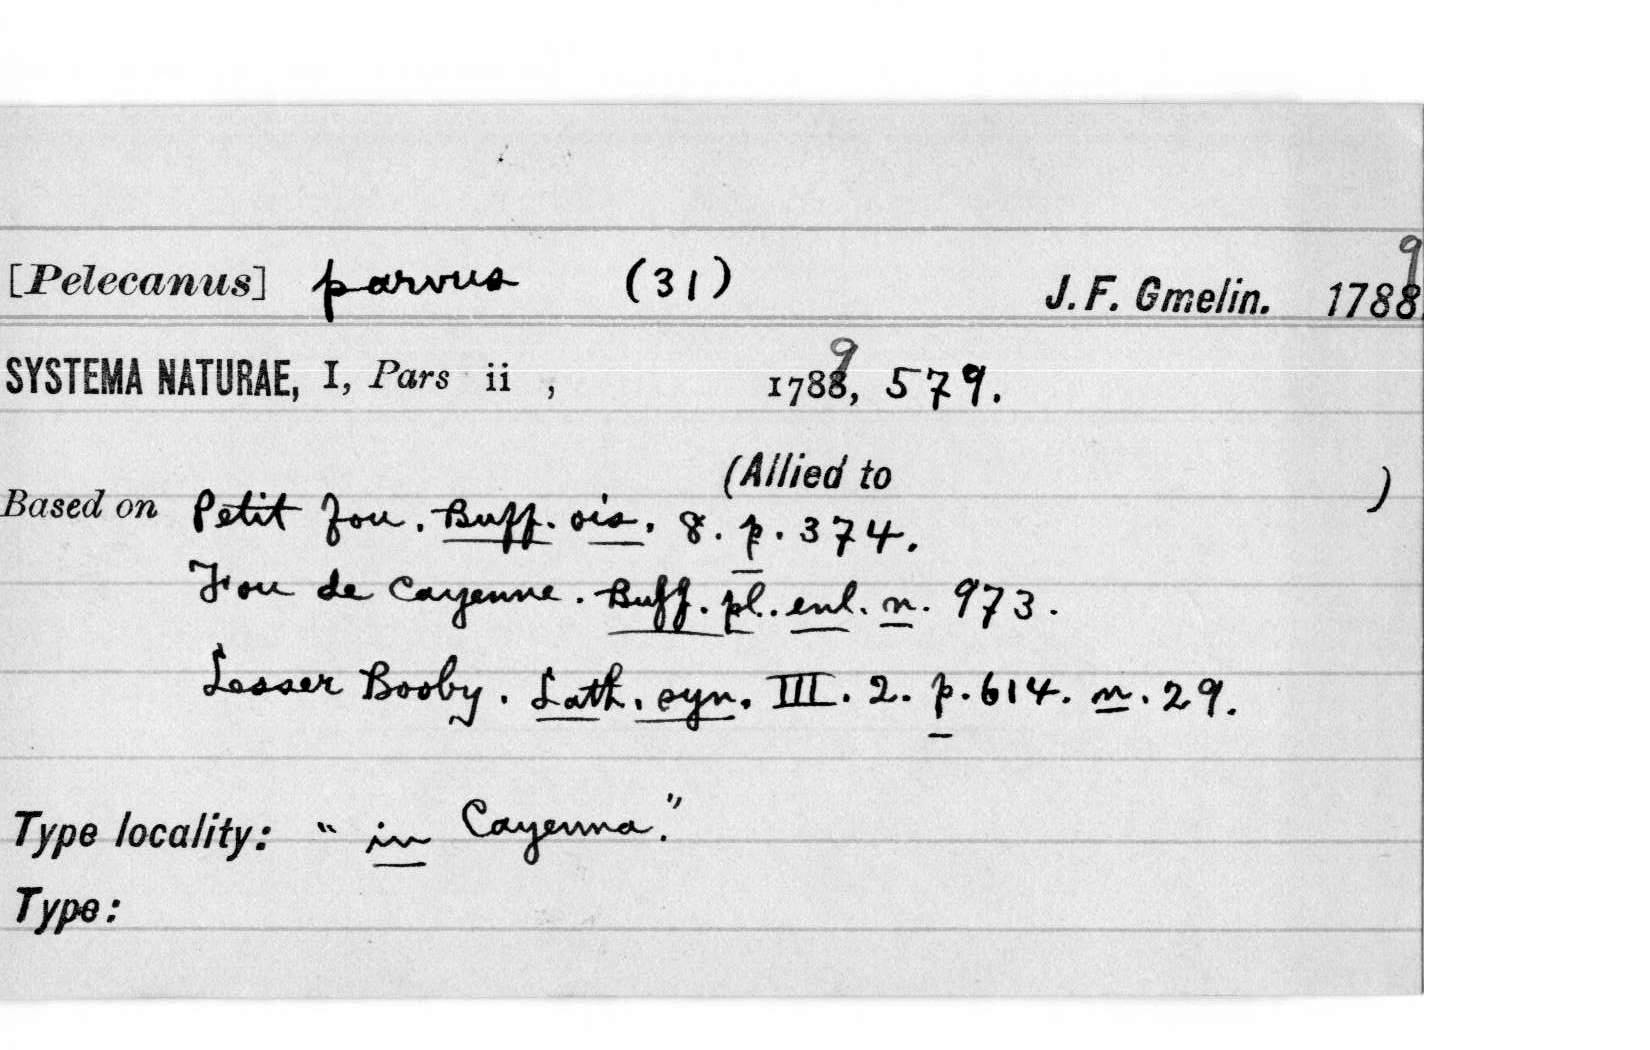 [Pelecanus] parvus (31) J. F. Gmelin. 1788 9
SYSTEMA NATURAE, I, Pars ii , 1788 9, 579.
(Allied to )
Based on Petit fou. Buff. ois. 8. p. 374.
Fou de Cayenne. Buff. pl. enl. n. 973.
Lesser Booby. Lath. syn. III. 2. p. 614. n. 29.
Type locality: " in Cayenna."
Type: